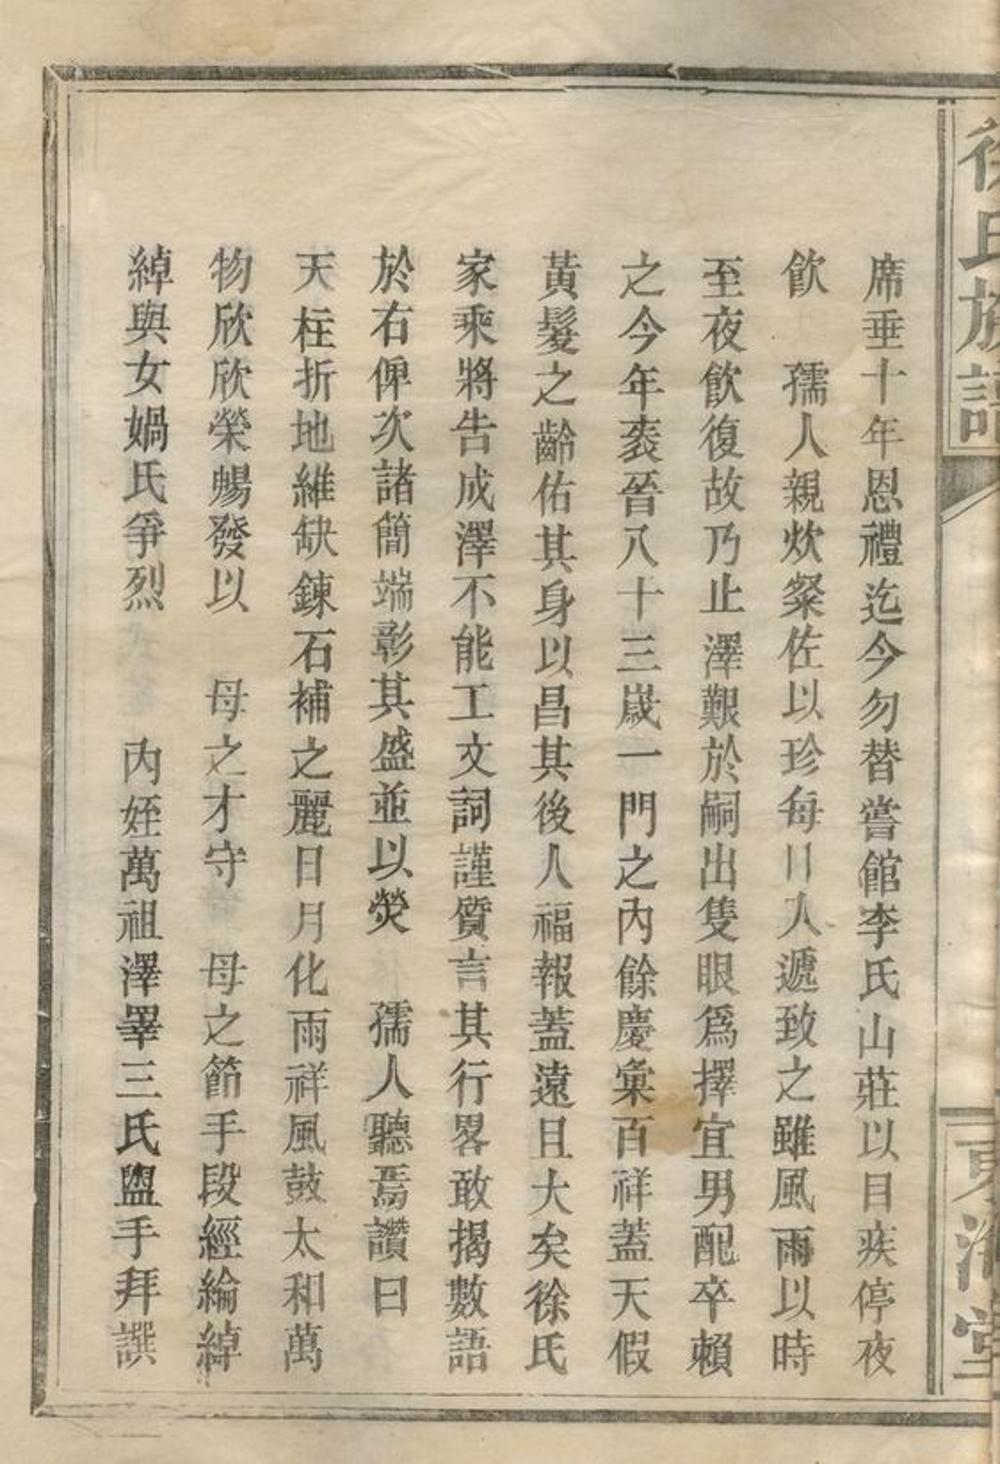 徐氏族譜
東海堂
席垂十年恩禮迄今勿替嘗館李氏山莊以目疾停夜
飲　孺人親炊粲佐以珍每日人遞致之雖風雨以時
至夜飲復故乃止澤艱於嗣出隻眼爲擇宜男配卒賴
之今年袠晉八十三歲一門之內餘慶彙百祥蓋天假
黃髮之齡佑其身以昌其後人福報蓋遠且大矣徐氏
家乘將告成澤不能工文詞謹質言其行畧敢揭數語
於右俾次諸簡端彰其盛並以熒　孺人聽焉讚曰
天柱折地維缺鍊石補之麗日月化雨祥風鼓太和萬
物欣欣榮暢發以　母之才守　母之節手段經綸綽
綽與女媧氏爭烈　　內姪萬祖澤睪三氏盥手拜譔